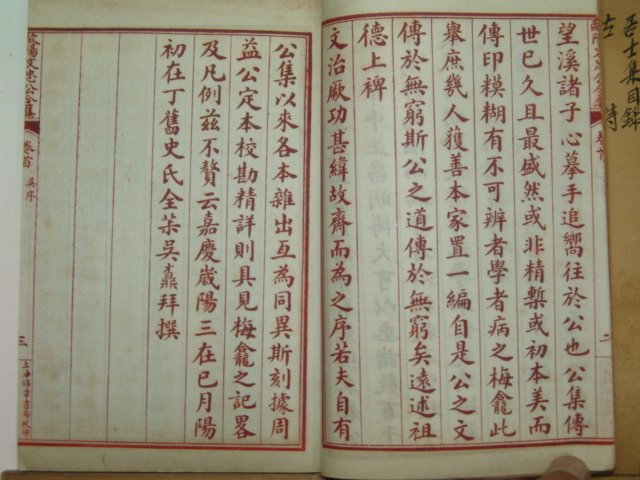 望溪諸子心摹手追嚮往於公也公集傳
世已久且最盛然或非精槧或初本美而
傳印模糊有不可辨者學者病之梅龕此
舉庶幾人獲善本家置一編自是公之文
傳於無窮斯公之道傳於無窮矣遠述祖
德上裨
文治厥功甚緯故齋而為之序若夫自有
公集以來各本雜出互為同異斯刻據周
益公定本校勘精詳則具見梅龕之記畧
及凡例茲不贅云嘉慶歲陽三在已月陽
初在丁舊史氏全茶吳鼒拜撰
歐陽文忠公全集
卷首
吳序
三